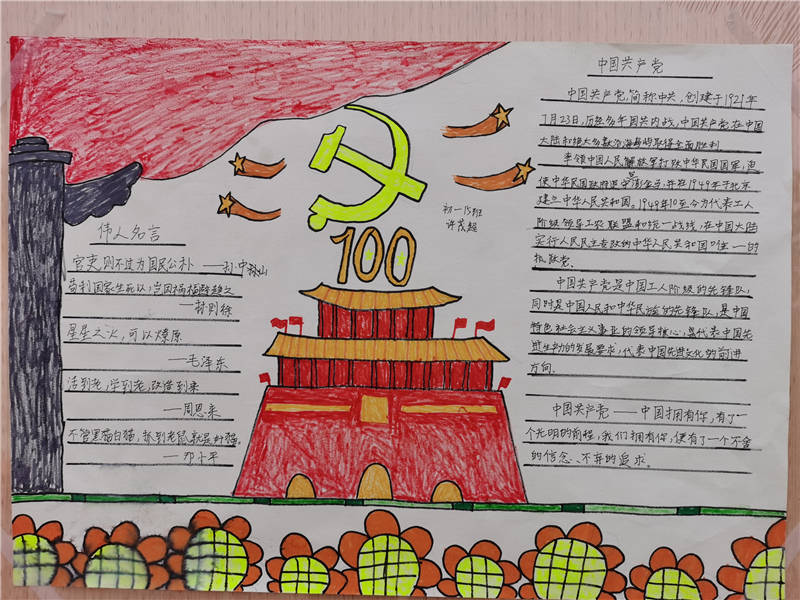 伟人名言
官吏则不过为国民公朴 ——孙中山
苟利国家生死以,岂因祸福避趋之
——林则徐
星星之火,可以燎原
——毛泽东
活到老,学到老,改造到老
——周恩来
不管黑猫白猫,抓到老鼠就是好猫。
——邓小平
100
初一15班
许茂超
中国共产党
中国共产党,简称中共,创建于1921年
7月23日,历经多年国共内战,中国共产党在中国
大陆和绝大多数沿海岛屿取得全面胜利
率领中国人民解放军打败中华民国国军,迫
使中华民国政府退守澎台金马,并在1949年于北京
建立中华人民共和国。1949年10至今为代表工人
阶级领导工农联盟和统一战线,在中国大陆
实行人民民主专政的中华人民共和国唯一的
执政党。
中国共产党是中国工人阶级的先锋队,
同时是中国人民和中华民族的先锋队,是中国
特色社会主义事业的领导核心,是代表中国先
进生产力的发展要求,代表中国先进文化的前进
方向。
中国共产党——中国拥有你,有了一
个光明的前程,我们拥有你,便有了一个不舍
的信念、不弃的追求。